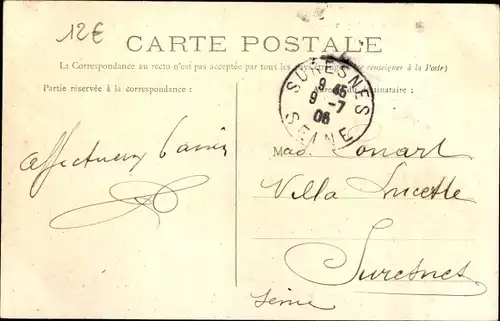 12€
CARTE POSTALE
La Correspondance au recto n'est pas acceptée par tous les renseigner à la Poste)
Partie réservée à la correspondance :
SURESNES
9 45
9 -7
06
SEINE
Mad.
Villa Lucette
Suresnes
Seine